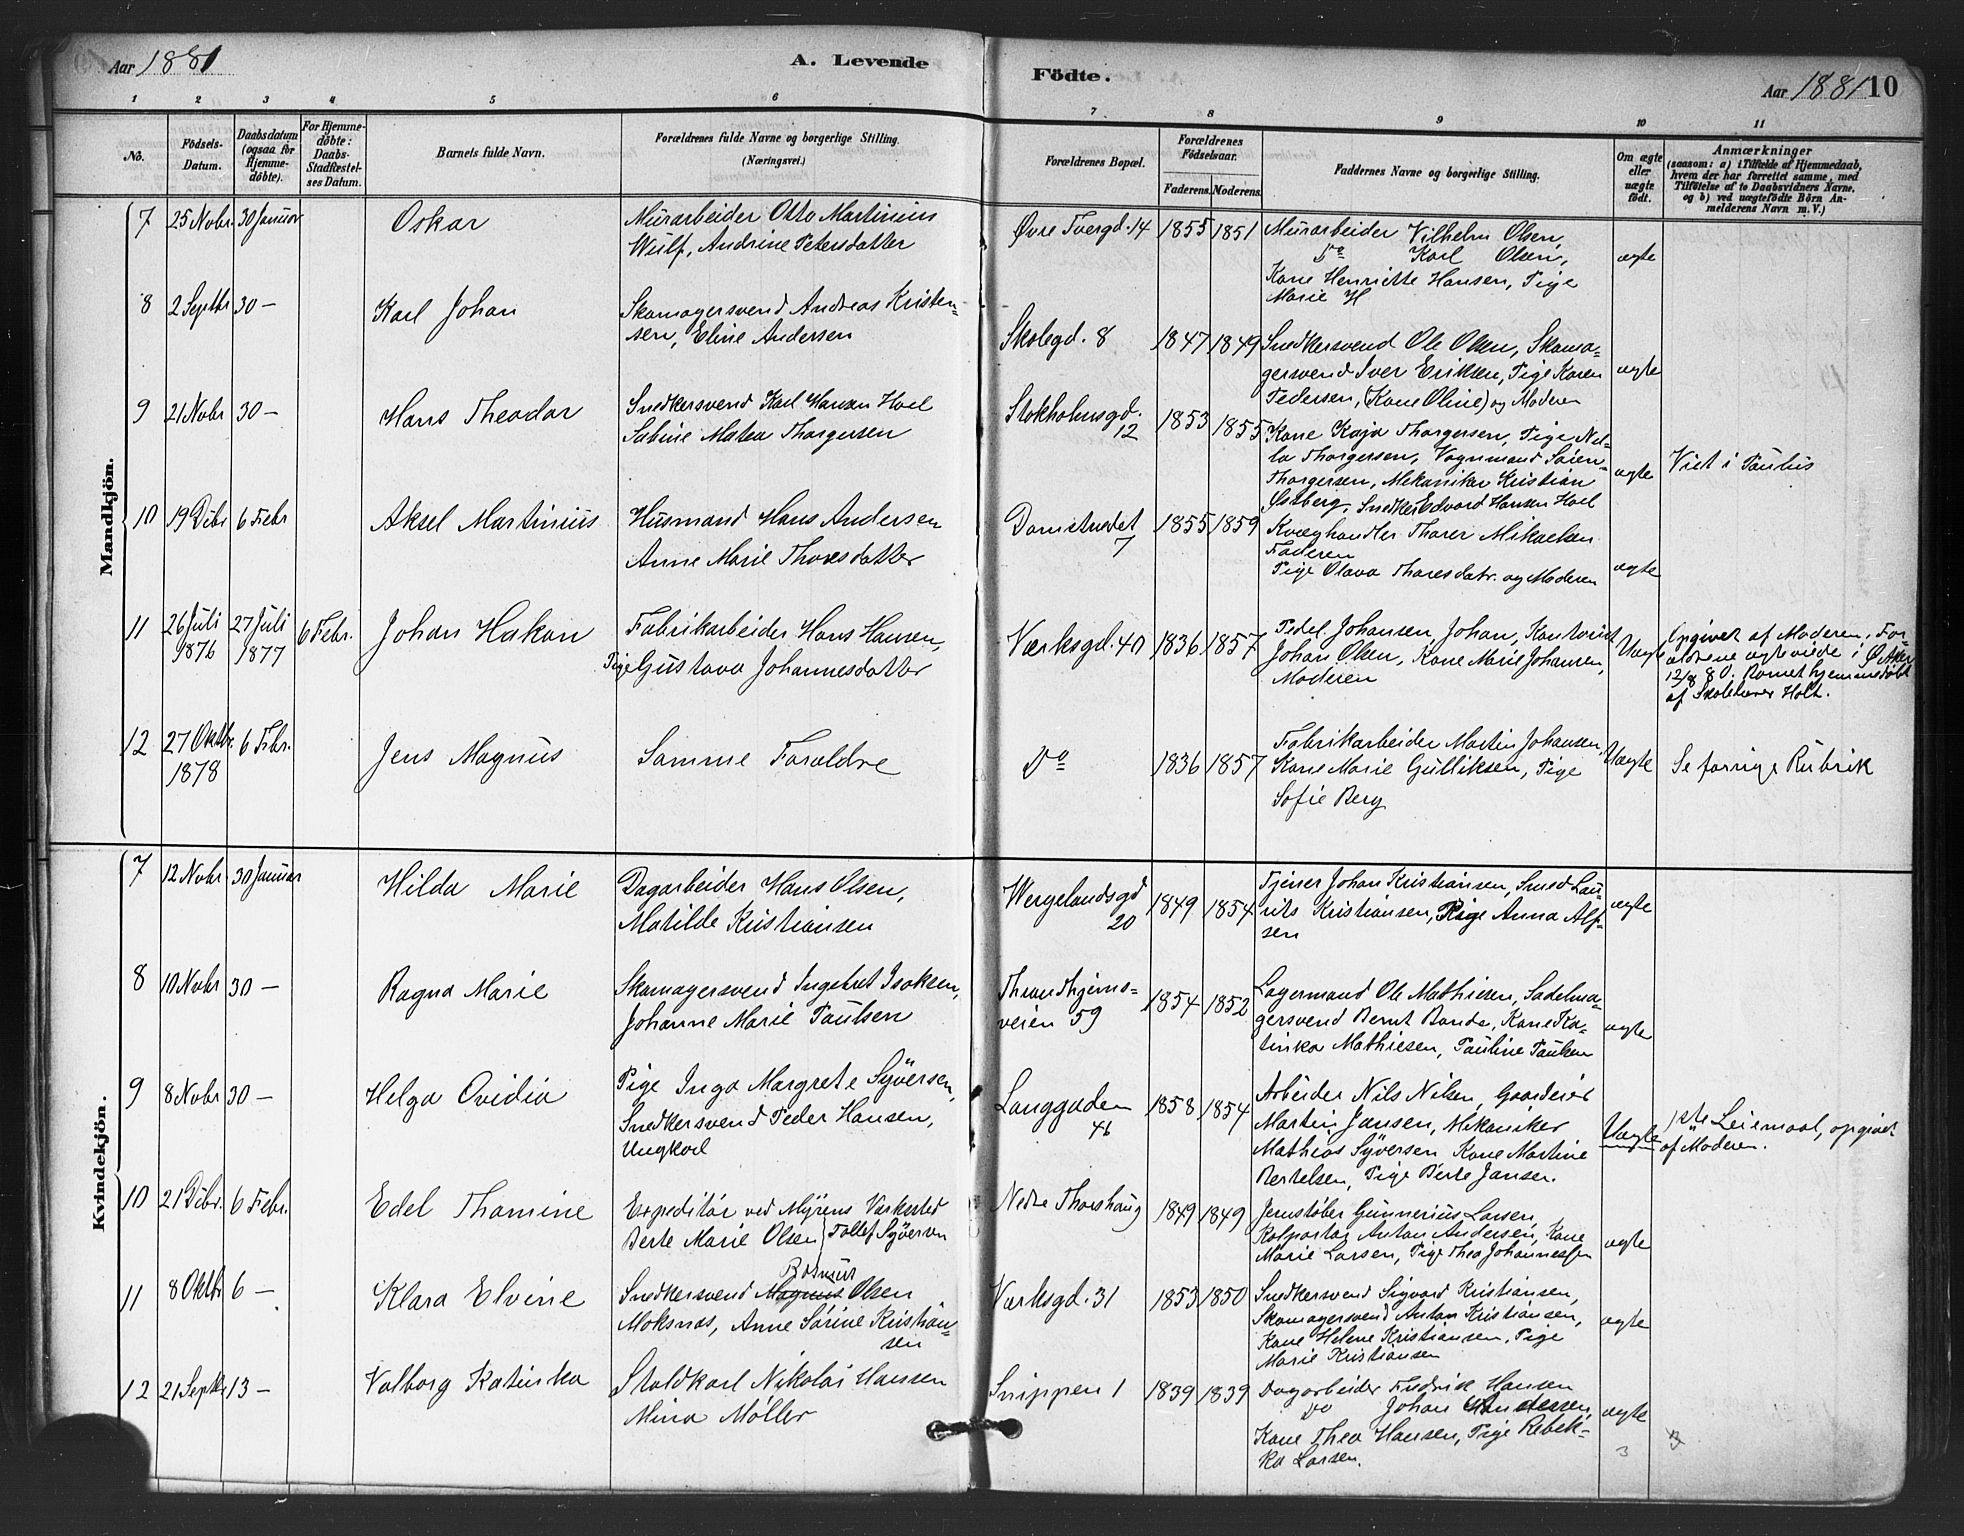 Aar 1881
A. Levende
Födte.
Aar 1881 10
1 2 3 4 5 6 7 8 9 10 11
No.
Födsels-
Datum.
Daabsdatum
(ogsaa for
Hjemme-
döbte).
For Hjemme-
döbte:
Daabs-
Stadfæstel-
ses Datum.
Barnets fulde Navn.
Forældrenes fulde Navne og borgerlige Stilling.
(Næringsvei.)
Forældrenes Bopæl.
Forældrenes
Födselsaar.
Faderens. Moderens.
Faddernes Navne og borgerlige Stilling.
Om ægte
eller
uægte
födt.
Anmærkninger
(saasom: a) i Tilfælde af Hjemmedaab,
hvem der har forrettet samme, med
Tilföielse af to Daabsvidners Navne.
og b) ved uægtefödte Börn An-
melderens Navn m. V.)
Mandkjön.
7 25 Novbr. 30 Januar
Oskar
Murarbeider Otto Martinius
Wulf, Andrine Petersdatter
Øvre Fossgd. 14 1855 1851
Murarbeider Vilhelm Olsen,
Do Karl Olsen,
Kone Henriette Hansen, Pige
Marie H
ægte
8 2 Septbr 30 —
Karl Johan
Skomagersvend Andreas Kristen-
sen, Eline Andersen
Skolegd. 8 1847 1849
Snedkersvend Ole Olsen, Skoma-
gersvend Iver Eriksen, Pige Karen
Pedersen, (Kone Oline) og Moderen
ægte
9 21 Novbr 30 —
Hans Theodor
Snedkersvend Karl Hansen Hoel
Sabine Matea Thorgersen
Stokholmsgd.
12
1853 1855
Kone Kaja Thorgersen, Pige Nel-
la Thorgersen, Vognmand Sören
Thorgersen, Mekaniker Kristian
Ystberg, Snedker Edvard Hansen Hoel
ægte
Viet i Paulus
10 19 Debr 6 Febr
Aksel Martinius
Husmand Hans Andersen
Anne Marie Thoresdatter
Damstredet
7
1855 1859
Kvæghandler Thorer Mikaelsen
Faderen
Pige Olava Thoresdatr. og Moderen
ægte
11 26 Juli
1876
27 Juli
1877
6 Febr.
Johan Hakon
Fabrikarbeider Hans Hansen,
Pige Gustava Johannesdatter
Værksgd. 40 1836 1857
Pedel Johansen, Johan, Kontorist
Johan Olsen, Kone Marie Johansen,
Moderen
Uægte
Opgivet af Moderen. For-
ældrene ægteviede i Ø. Aker
12/8 80. Barnet hjemmedøbt
af Skolelærer Holt.
12 27 Oktbr.
1878
6 Febr.
Jens Magnus
Samme Forældre
Do 1836 1857
Fabrikarbeider Martin Johansen,
Kone Marie Gulliksen, Pige
Sofie Berg
Uægte
Se forrige Rubrik
Kvindekjön.
7 12 Novbr. 30 Januar
Hilda Marie
Dagarbeider Hans Olsen,
Matilde Kristiansen
Wergelandsgd
20
1849 1854
Tjener Johan Kristiansen, Smed Lau-
rits Kristiansen, Pige Anna Alf-
sen
ægte
8 10 Novbr 30 —
Ragna Marie
Skomagersvend Ingebret Isaksen,
Johanne Marie Paulsen
Throndhjems-
veien 59
1854 1852
Lagermand Ole Mathiesen, Sadelma-
gersvend Bernt Bonde, Kone Ka-
tinka Mathiesen, Pauline Paulsen
ægte
9 8 Novbr 30 —
Helga Ovidia
Pige Inga Margrete Syversen,
Snedkersvend Peder Hansen,
Ungkarl
Langgaden
46
1858 1854
Arbeider Nils Nilsen, Gaardeier
Martin Jansen, Mekaniker
Mathias Syversen Kone Martine
Bertelsen, Pige Berte Jansen.
Uægte
1ste Leiemaal, opgivet
af Moderen.
10 21 Debr. 6 Febr.
Edel Thomine
Expeditør ved Myrens Værksted
Berte Marie Olsen Tollef Syversen
Nedre Thorshaug 1849 1849
Jernstøber Gunnerius Larsen,
Kolportør Anton Andersen, Kone
Marie Larsen, Pige Thea Johannessen
ægte
11 8 Oktbr 6 —
Klara Elvine
Rasmus
Snedkersvend Magnus Olsen
Moksnæs, Anne Sørine Kristian-
sen
Værksgd. 31 1853 1850
Snedkersvend Sigvard Kristiansen,
Skomagersvend Anton Kristiansen,
Kone Helene Kristiansen, Pige
Marie Kristiansen
ægte
12 21 Septbr 13 —
Valborg Katinka
Staldkarl Nikolai Hansen
Mina Møller
Snippen 1 1839 1839
Dagarbeider Fredrik Hansen
Do Johan Andersen,
Kone Thea Hansen, Pige Rebek-
ka Larsen.
ægte
3